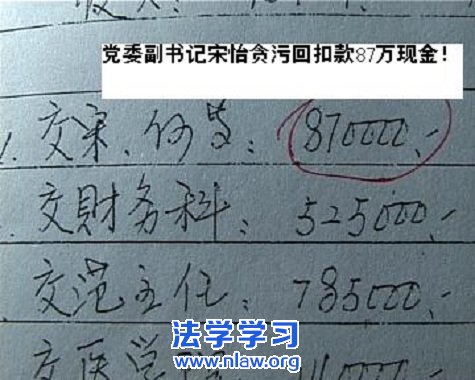 党委副书记宋怡贪污回扣款87万现金!
交宋、何等: 870000.-
交財务科: 525000.-
交范主任: 785000.-
法学学习
www.nlaw.org
交医学